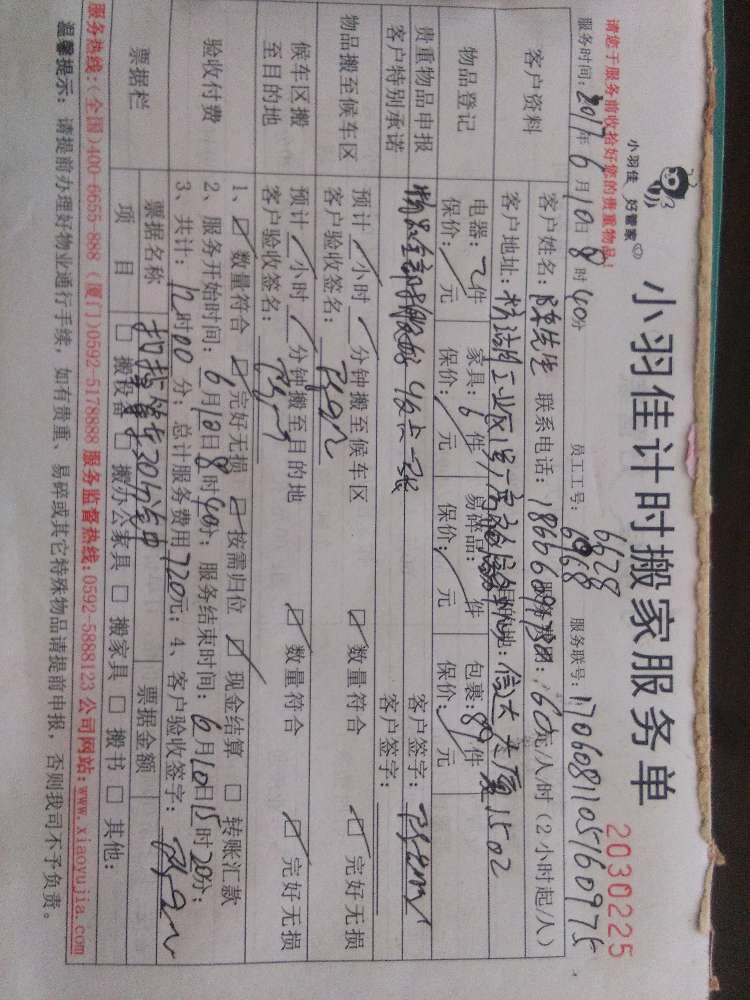 小羽佳 好管家
小羽佳计时搬家服务单
2030225
请您于服务前收拾好您的贵重物品！
员工工号: 6628
6968
服务联号: 1706081105160975
服务时间: 2017年6月10日8时40分
客户资料
客户姓名: 陈先生 联系电话: 服务费用: 60元/人/时(2小时起/人)
客户地址: 工业区 目的地: 信大大厦1502
物品登记
电器: 2件 家具: 6件 易碎品: 件 包裹: 89件
保价: 元 保价: 元 保价: 元 保价: 元
贵重物品申报 客户签字:
客户特别承诺 客户签字:
物品搬至候车区
预计 小时 分钟搬至候车区 ☑ 数量符合 ☑ 完好无损
客户验收签名:
候车区搬至目的地
预计 小时 分钟搬至目的地 ☑ 数量符合 ☑ 完好无损
客户验收签名:
验收付费
1、☑ 数量符合 ☑ 完好无损 ☑ 按需归位 ☑ 现金结算 □ 转账汇款
2、服务开始时间: 6月10日8时40分; 服务结束时间: 6月10日15时20分;
3、共计: 12时00分; 总计服务费用720元; 4、客户验收签字:
票据栏
票据名称 票据金额
项目 □ 搬设备 □ 搬办公家具 □ 搬家具 □ 搬书 □ 其他:
服务热线:(全国)400-6655-888 (厦门)0592-5178888 服务监督热线:0592-5888123 公司网站:www.xiaoyujia.com
温馨提示: 请提前办理好物业通行手续, 如有贵重、易碎或其它特殊物品请提前申报, 否则我司不予负责。